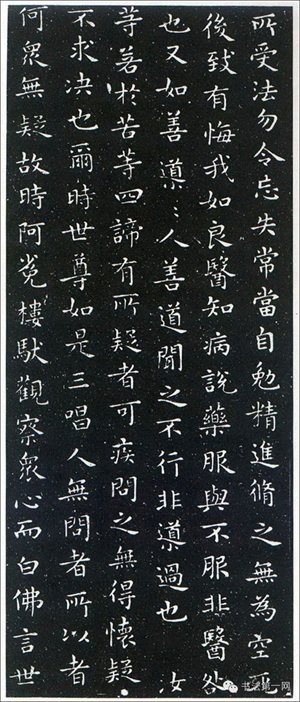 所受法勿令忘失常當自勉精進脩之無為空死
後致有悔我如良醫知病說藥服與不服非醫咎
也又如善導〻人善道聞之不行非導過也 汝
等若於苦等四諦有所疑者可疾問之無得懷疑
不求决也爾時世尊如是三唱人無問者所以者
何眾無疑故時阿㝹樓馱觀察眾心而白佛言世
书法第一网